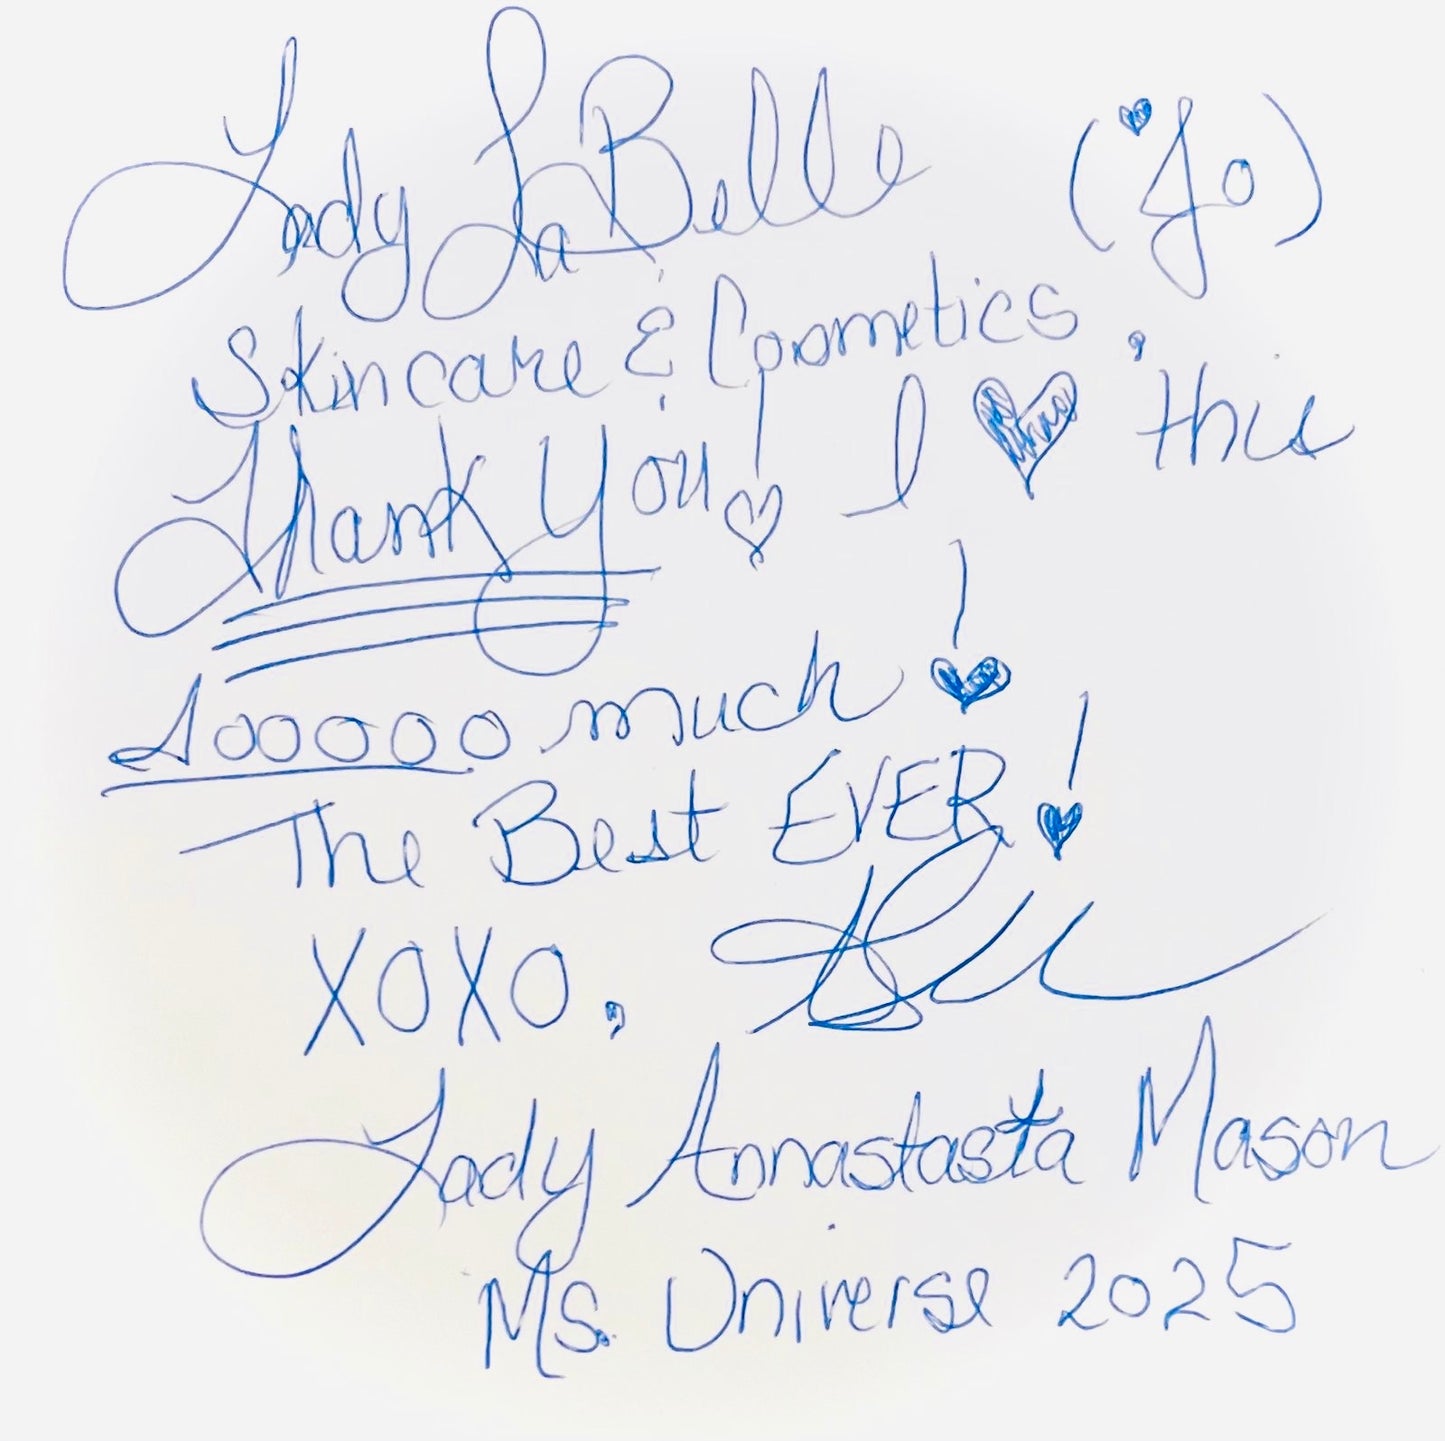 Lady LaBelle (Jo)
Skincare & Cosmetics,
Thank You! I ♥ this
Sooooo much!
The Best EVER!
XOXO,
Lady Annastasta Mason
Ms. Universe 2025